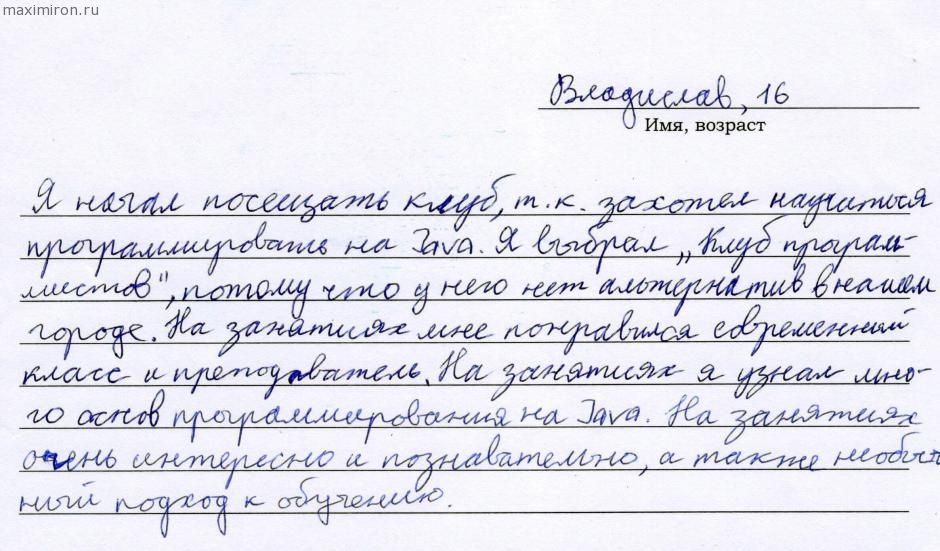 maximiron.ru
Владислав, 16
Имя, возраст
Я начал посещать клуб, т.к. захотел научиться
программировать на Java. Я выбрал „Клуб програм-
мистов", потому что у него нет альтернатив в нашем
городе. На занятиях мне понравился современный
класс и преподаватель. На занятиях я узнал мно-
го основ программирования на Java. На занятиях
очень интересно и познавательно, а также необыч
ный подход к обучению.